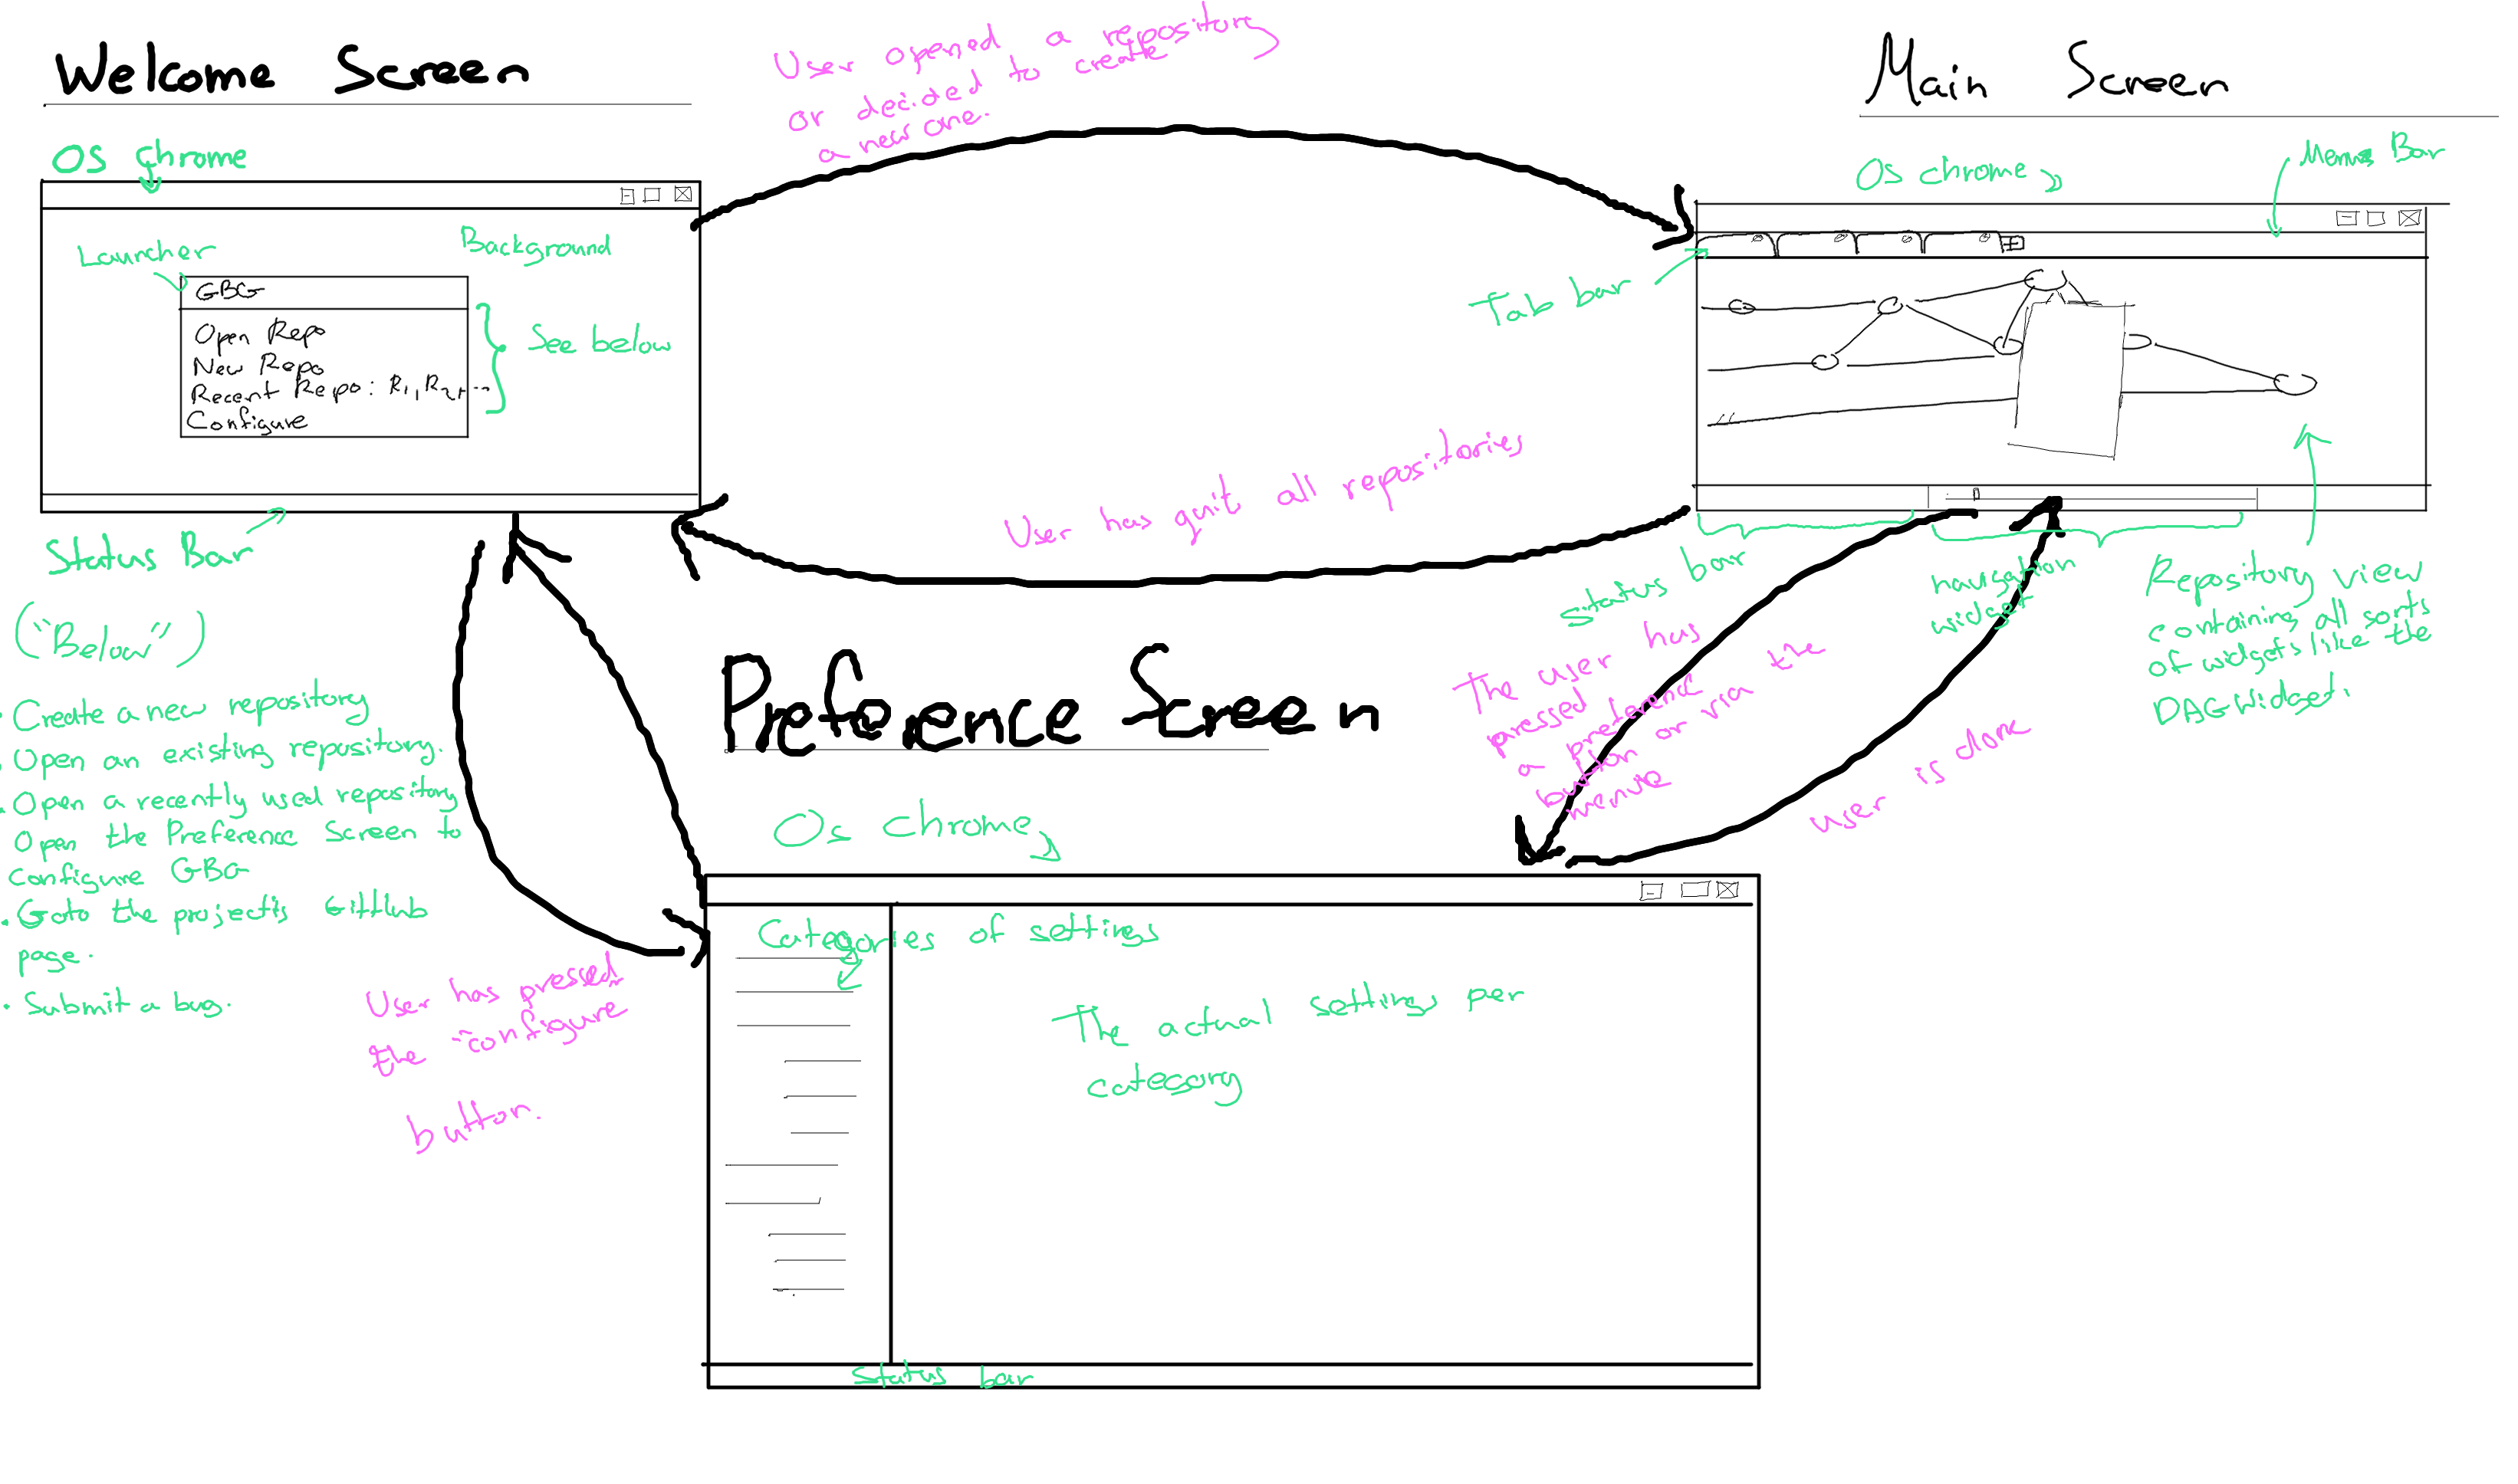 Welcome Screen
OS chrome
Launcher
Background
GBG
Open Repo
New Repo
Recent Repo: R1, R2, ...
Configure
See below
Status Bar
("Below")
. Create a new repository
. Open an existing repository.
. Open a recently used repository
Open the Preference Screen to
Configure GBG
. Goto the project's GitHub
page.
. Submit a bug.
User opened a repository
or decided to create
a new one.
User has quit all repositories
Main Screen
Os chrome
Menu Bar
Tab bar
status bar
navigation
widget
Repository view
containing all sorts
of widgets like the
DAGWidget.
The user has
pressed
a preference
button or via the
menue
user is done
User has pressed
the "configure
button.
Preference Screen
Os chrome
Categories of settings
The actual settings per
category
Status bar